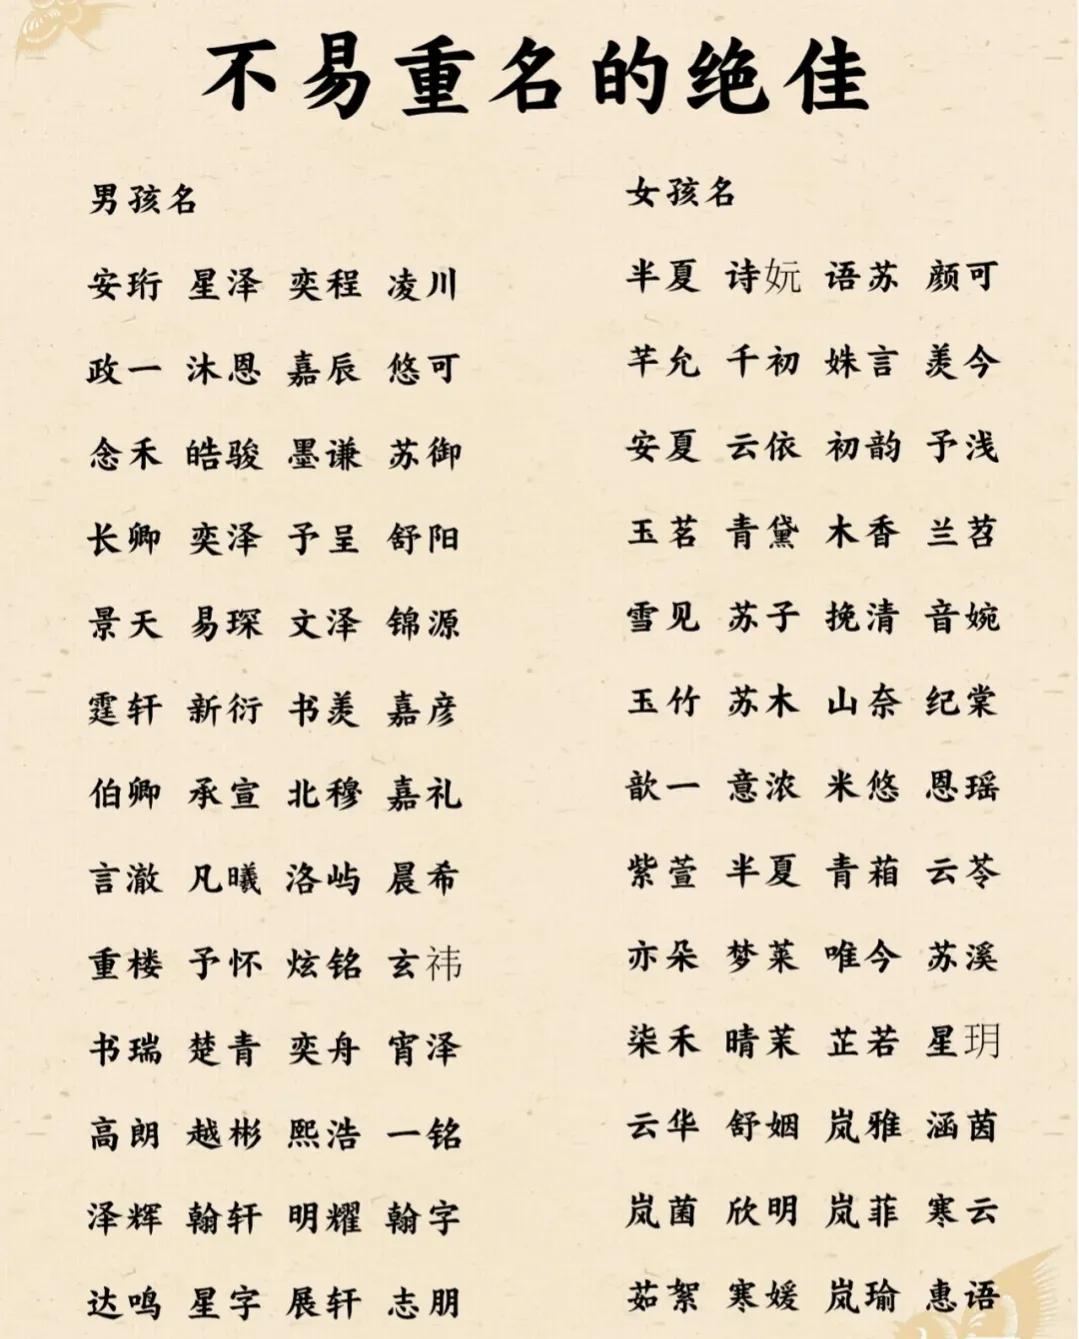 不易重名的绝佳
男孩名
安珩 星泽 奕程 凌川
政一 沐恩 嘉辰 悠可
念禾 皓骏 墨谦 苏御
长卿 奕泽 予呈 舒阳
景天 易琛 文泽 锦源
霆轩 新衍 书羡 嘉彦
伯卿 承宣 北穆 嘉礼
言澈 凡曦 洛屿 晨希
重楼 予怀 炫铭 玄祎
书瑞 楚青 奕舟 宵泽
高朗 越彬 熙浩 一铭
泽辉 翰轩 明耀 翰字
达鸣 星字 展轩 志朋
女孩名
半夏 诗妧 语苏 颜可
芊允 千初 姝言 羡今
安夏 云依 初韵 予浅
玉茗 青黛 木香 兰苕
雪见 苏子 挽清 音婉
玉竹 苏木 山奈 纪棠
歆一 意浓 米悠 恩瑶
紫萱 半夏 青葙 云苓
亦朵 梦莱 唯今 苏溪
柒禾 晴茉 芷若 星玥
云华 舒姻 岚雅 涵茵
岚菌 欣明 岚菲 寒云
茹絮 寒媛 岚瑜 惠语